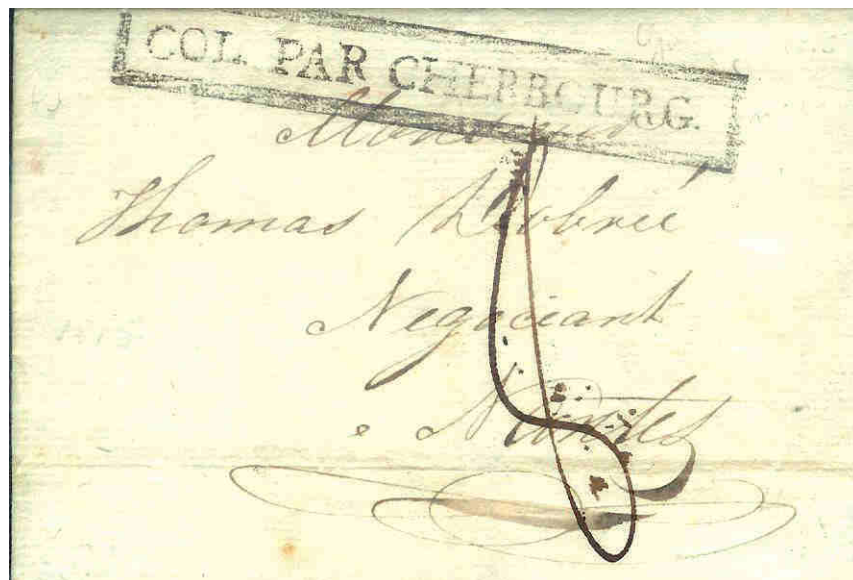 COL. PAR CHERBOURG.
Monsieur
Thomas Dobrée
Negociant
Nantes